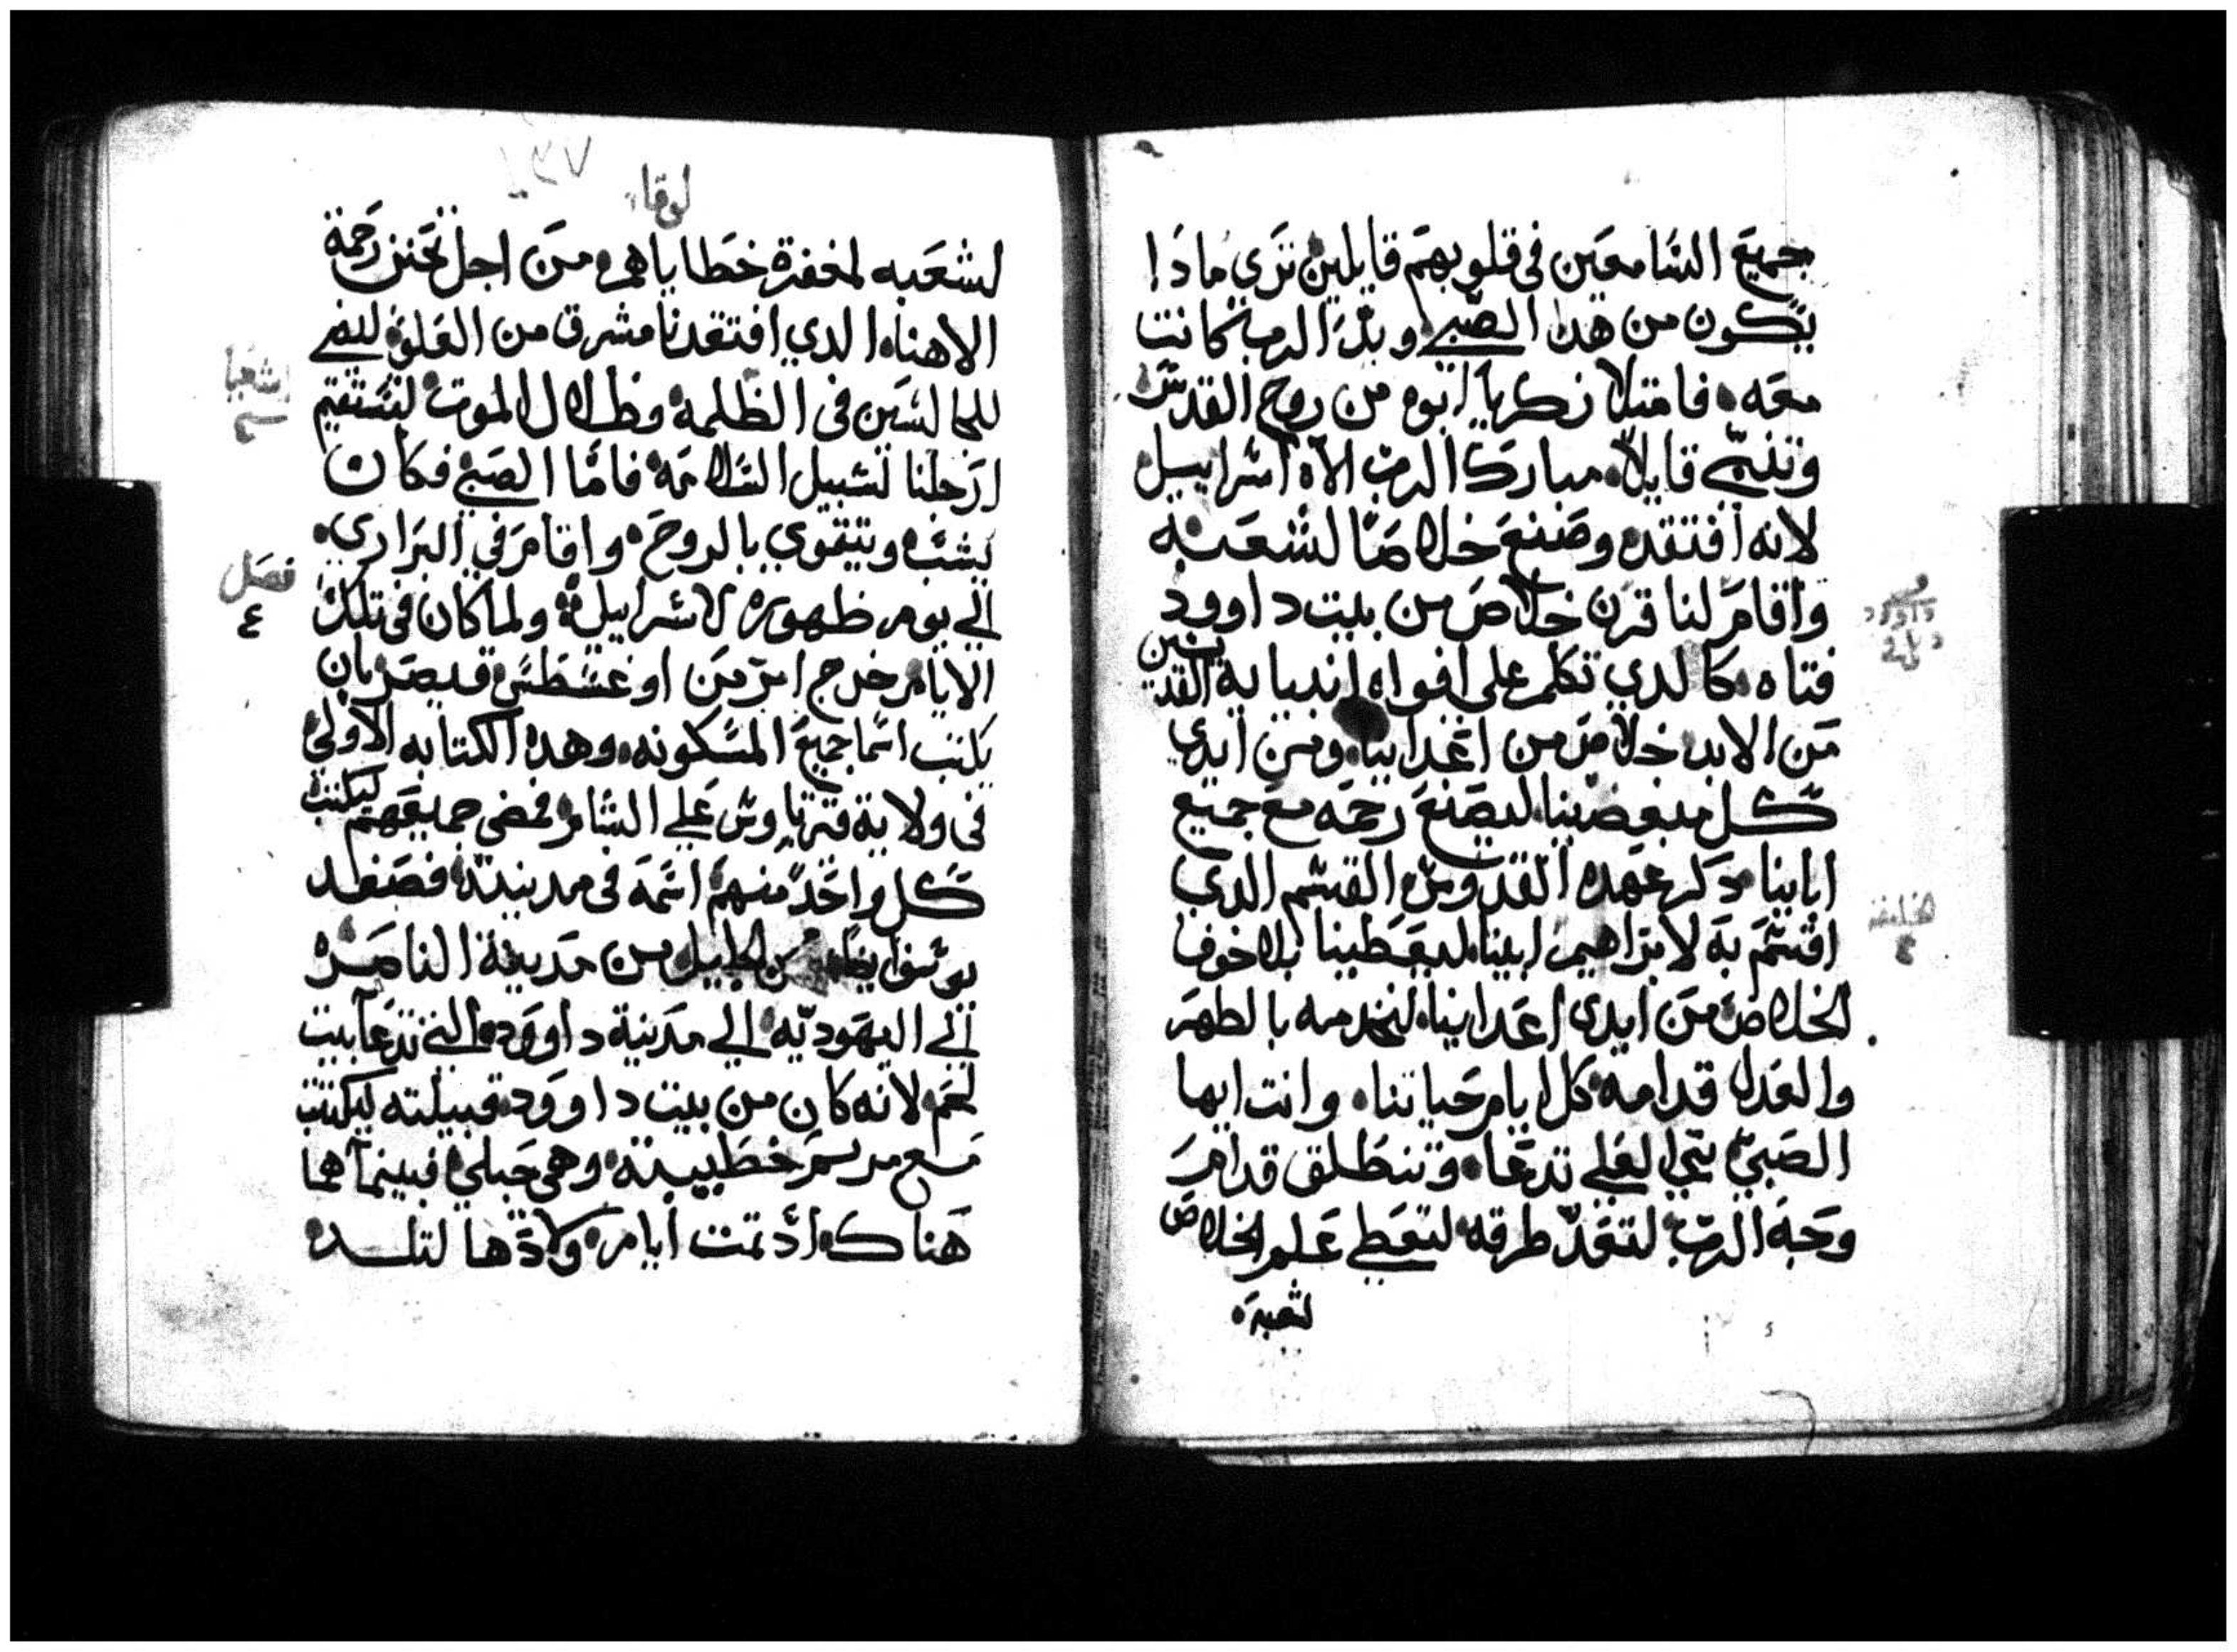 جميع السامعين في قلوبهم قايلين تري مادا
يكون من هدا الصبي ويد الرب كانت
معه فامتلا زكريا ابوه من روح القدس
وتنبي قايلا مبارك الرب الاه اسراييل
لانه افتقد وصنع خلاصا لشعبه
واقام لنا قرن خلاص من بيت داوود
فتاه كالدي تكلم علي افواه انبيايه القديسين
من الابد خلاص من اعداينا ومن ايدي
كل مبغضينا ليصنع رحمه مع جميع
اباينا دكر عهده القدوس القسم الدي
اقسم به لابراهيم ابينا ليعطينا بلا خوف
الخلاص من ايدي اعداينا لنخدمه بالطهر
والعدل قدامه كل ايام حياتنا وانت ايها
الصبي نبي العلي تدعا وتنطلق قدام
وجه الرب لتعد طرقه لتعطي علم الخلاص
لشعبه
داوود
١٣٧
لوقا
لشعبه لمغفرة خطاياهم من اجل تحنن رحمة
الاهنا الدي افتقدنا مشرق من العلو ليضي
للجالسين في الظلمه وظلال الموت لتستقيم
ارجلنا لسبيل السلامه فاما الصبي فكان
يشب ويتقوي بالروح واقام في البراري
الي يوم ظهوره لاسراييل ولما كان في تلك
الايام خرج امر من اوغسطس قيصر بان
يكتب اسما جميع المسكونه وهده الكتابه الاولي
في ولاية قرياوس علي الشام فمضي جميعهم ليكتب
كل واحد منهم اسمه في مدينته فصعد
يوسف ايضا من الجليل من مدينة الناصره
الي اليهوديه الي مدينة داوود التي تدعا بيت
لحم لانه كان من بيت داوود قبيلته ليكتتب
مع مريم خطيبته وهي حبلي فبينما هما
هناك اد تمت ايام ولادها لتلد
اشعيا
فصل
٤